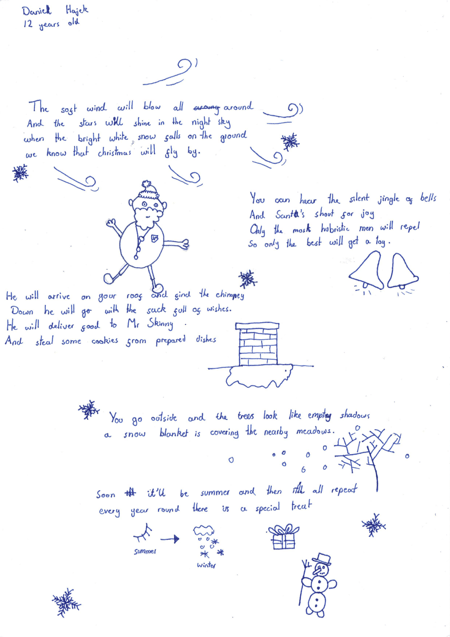 Daniel Hajek
12 years old
The soft wind will blow all around
And the stars will shine in the night sky
when the bright white snow falls on the ground
we know that christmas will fly by.
You can hear the silent jingle of bells
And Santa's shout for joy
Only the most hobristic men will repel
So only the best will get a toy.
He will arrive on your roof and find the chimney
Down he will go with the sack full of wishes.
He will deliver food to Mr Skinny.
And steal some cookies from prepared dishes
You go outside and the trees look like empty shadows
a snow blanket is covering the nearby meadows.
Soon it'll be summer and then all repeat
every year round there is a special treat
summer
winter